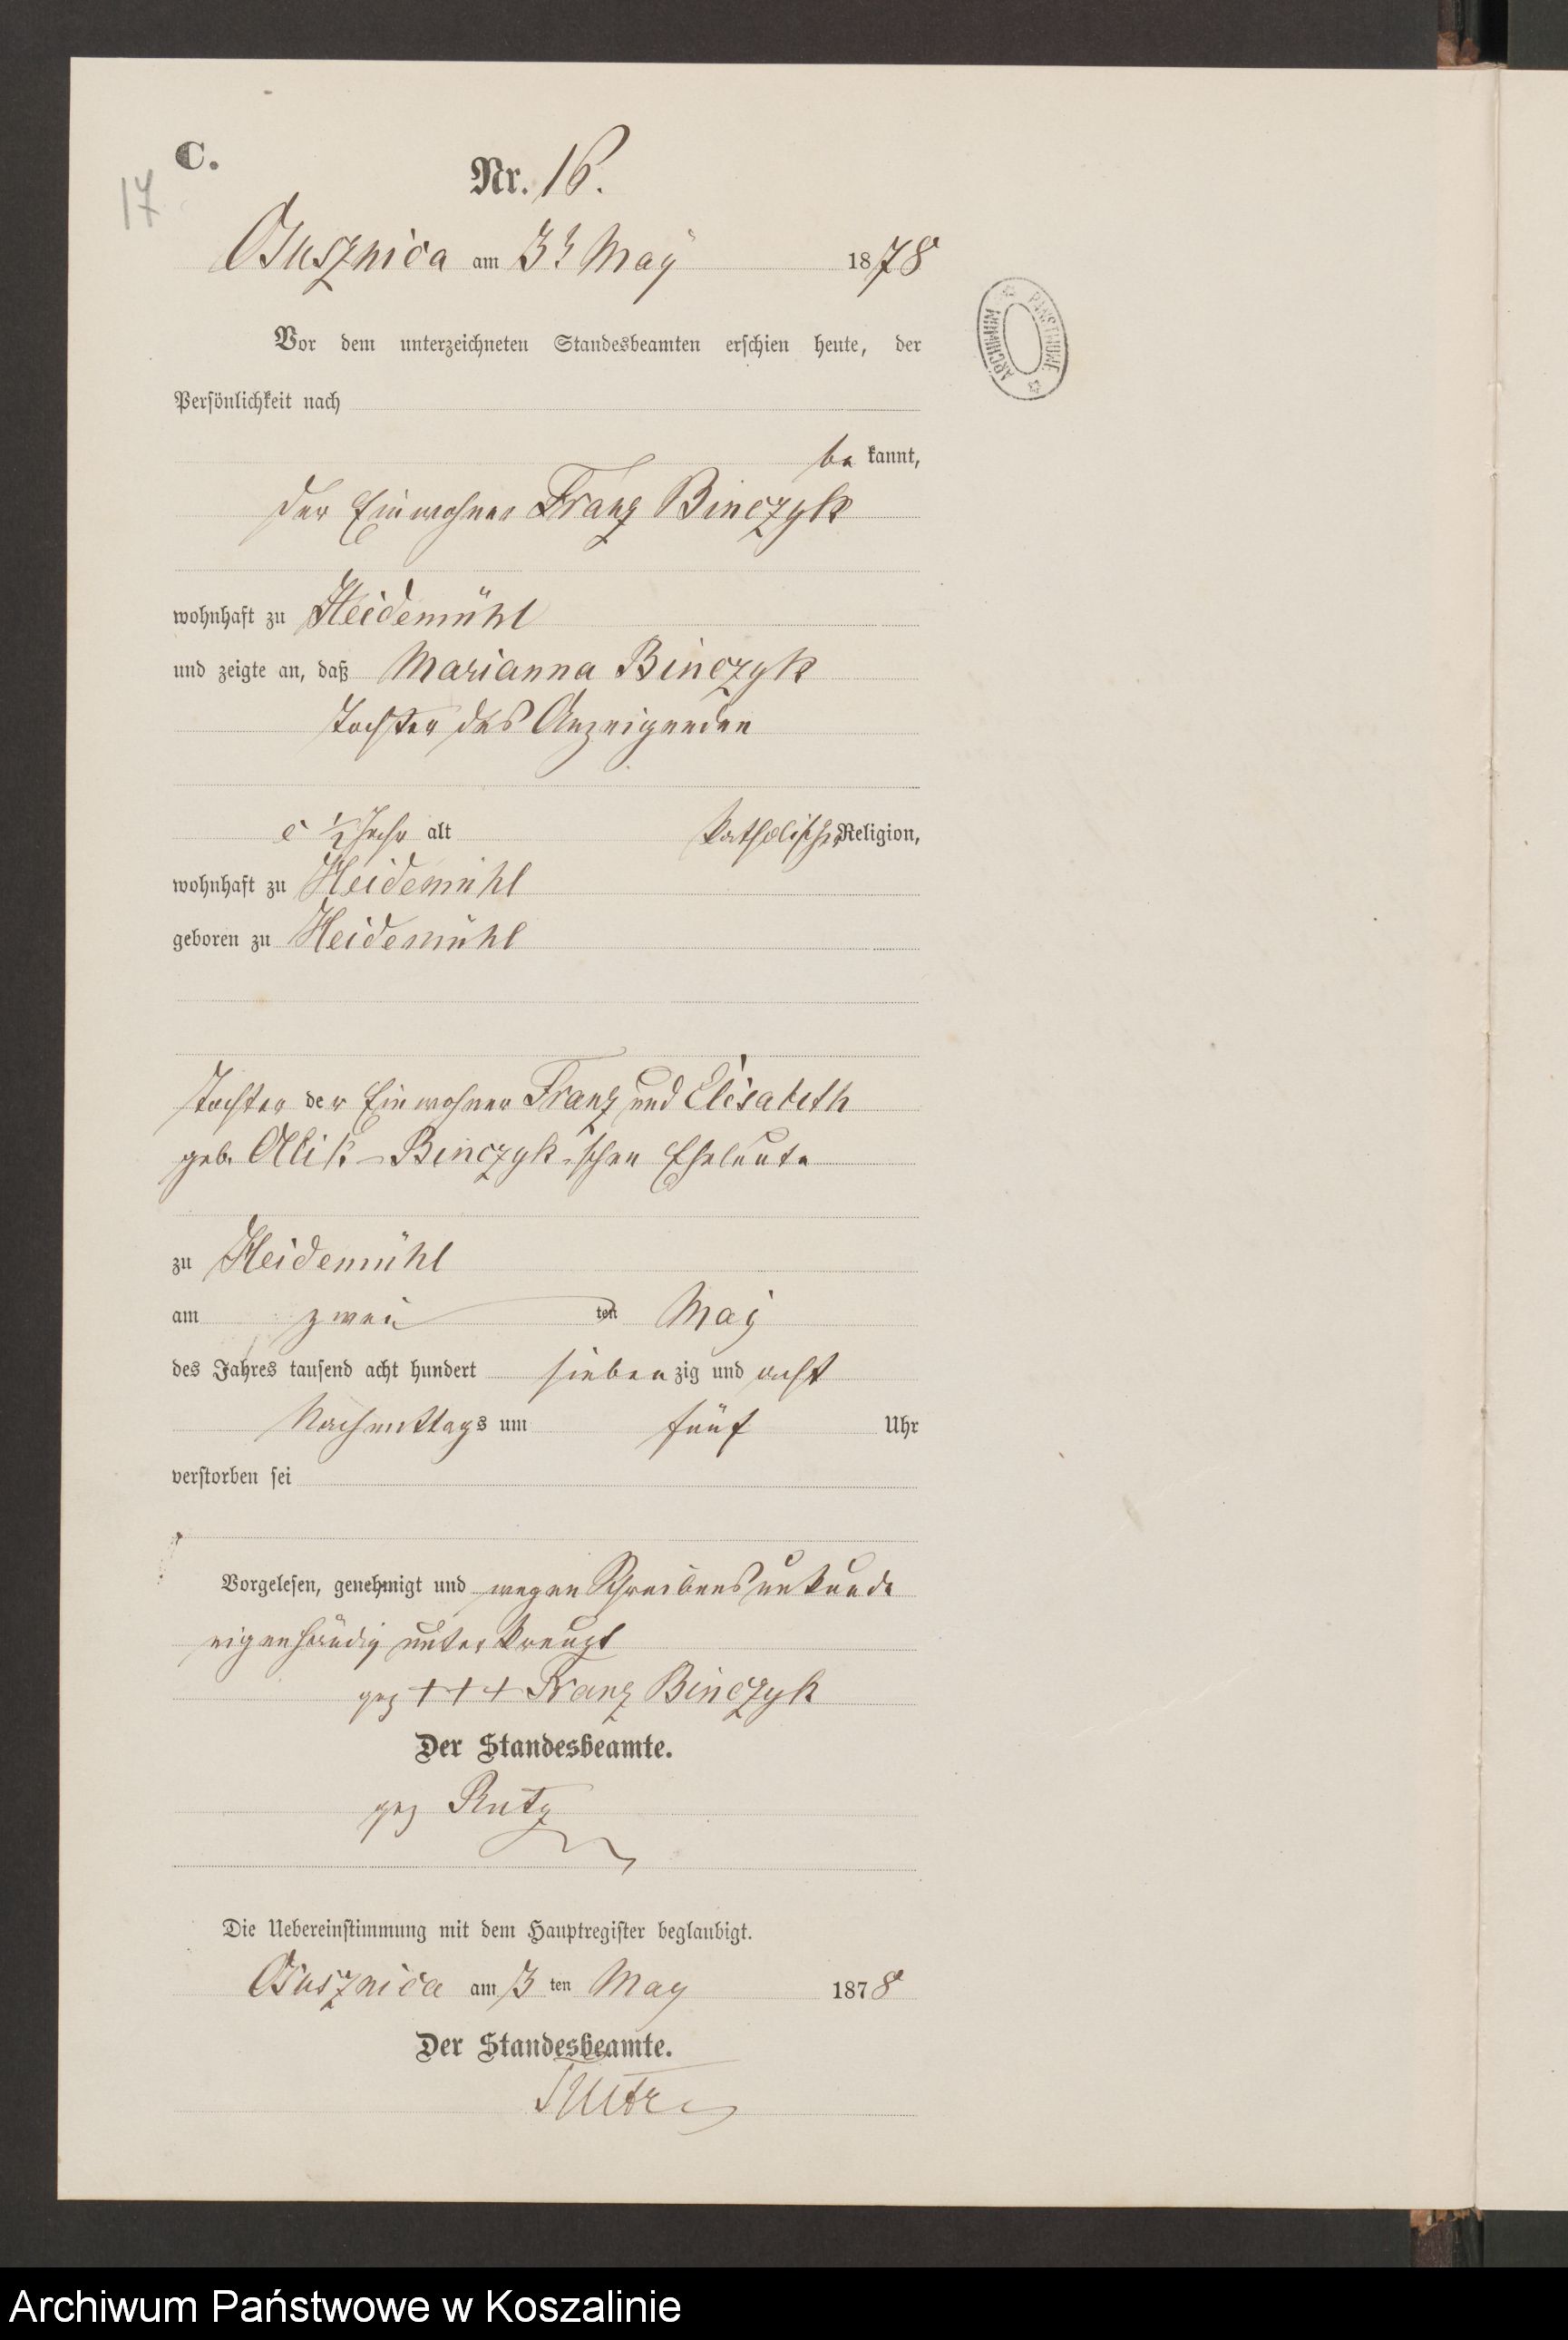 C.
17
Nr. 16.
Osusznica am 3t May 1878
Vor dem unterzeichneten Standesbeamten erschien heute, der
Persönlichkeit nach
be kannt,
der Einwohner Franz Binczyk
wohnhaft zu Heidemühl
und zeigte an, daß Marianna Binczyk
Tochter des Anzeigenden
1/2 Jahr alt katholischer Religion,
wohnhaft zu Heidemühl
geboren zu Heidemühl
Tochter der Einwohner Franz und Elisabeth
geb. Binczyk-schen Eheleute
zu Heidemühl
am zwei ten May
des Jahres tausend acht hundert sieben zig und acht
Nachmittags um fünf Uhr
verstorben sei
Vorgelesen, genehmigt und wegen Schreibensunkunde
eigenhändig unterkreuzt
gez +++ Franz Binczyk
Der Standesbeamte.
gez Rutz
Die Uebereinstimmung mit dem Hauptregister beglaubigt.
Osusznica am 3 ten May 1878
Der Standesbeamte.
Rutz
ARCHIWUM PAŃSTWOWE
Archiwum Państwowe w Koszalinie